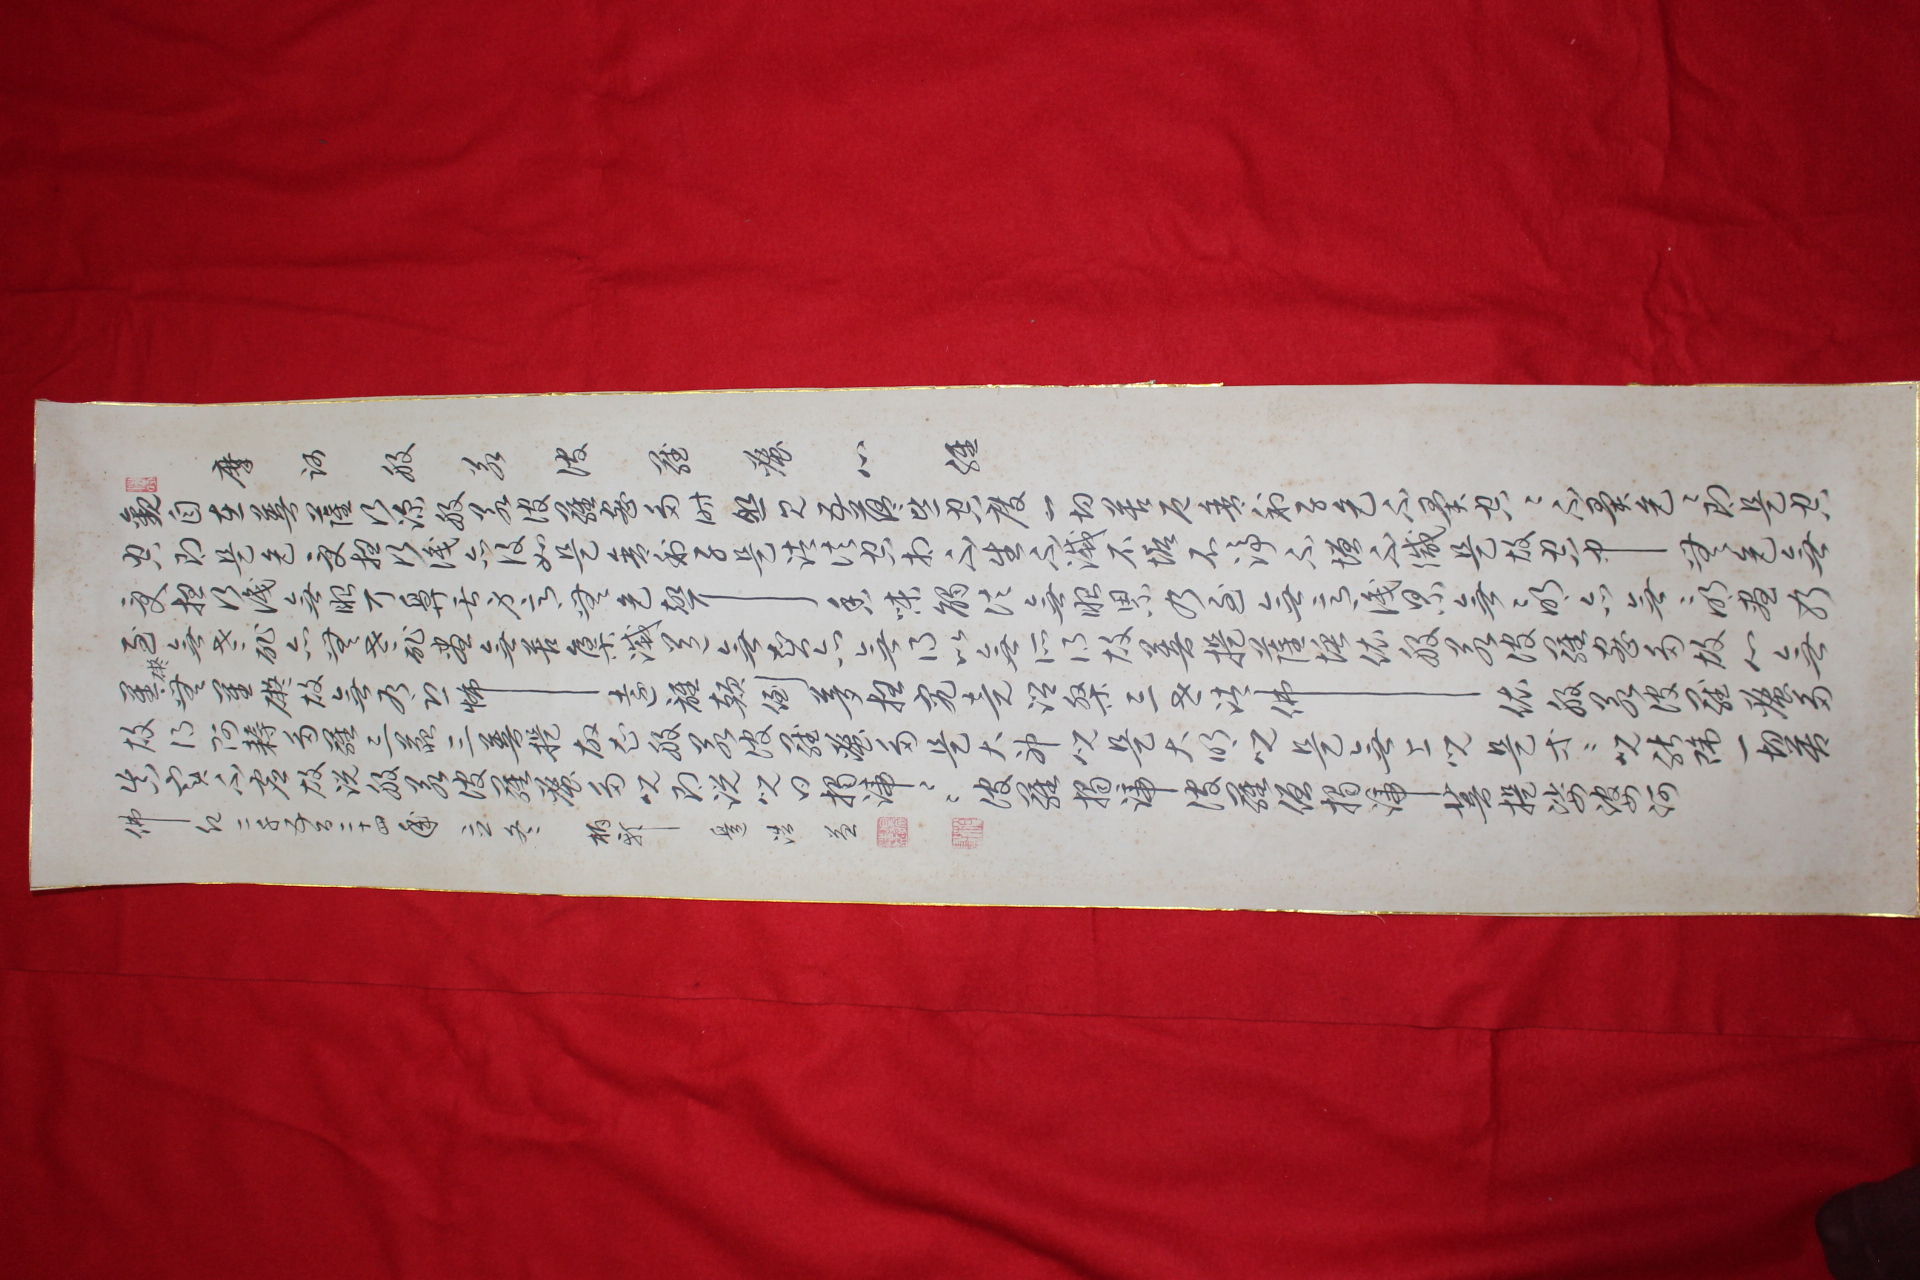 摩訶般若波羅蜜心經
觀自在菩薩行深般若波羅蜜多時照見五蘊皆空度一切苦厄舍利子色不異空〻不異色〻即是空
空即是色受想行識亦復如是舍利子是諸法空相不生不滅不垢不淨不增不減是故空中無色無
受想行識無眼耳鼻舌身意無色聲香味觸法無眼界乃至無意識界無〻明亦無〻明盡乃
至無老死亦無老死盡無苦集滅道無智亦無得以無所得故菩提薩埵依般若波羅蜜多故心無
罣礙無罣礙故無有恐怖遠離顛倒夢想究竟涅槃三世諸佛依般若波羅蜜多
故得阿耨多羅三藐三菩提故知般若波羅蜜多是大神咒是大明咒是無上咒是等〻咒能除一切苦
真實不虛故說般若波羅蜜多咒即說咒曰揭諦〻〻波羅揭諦波羅僧揭諦菩提娑婆訶
佛紀二千五百三十四年立冬